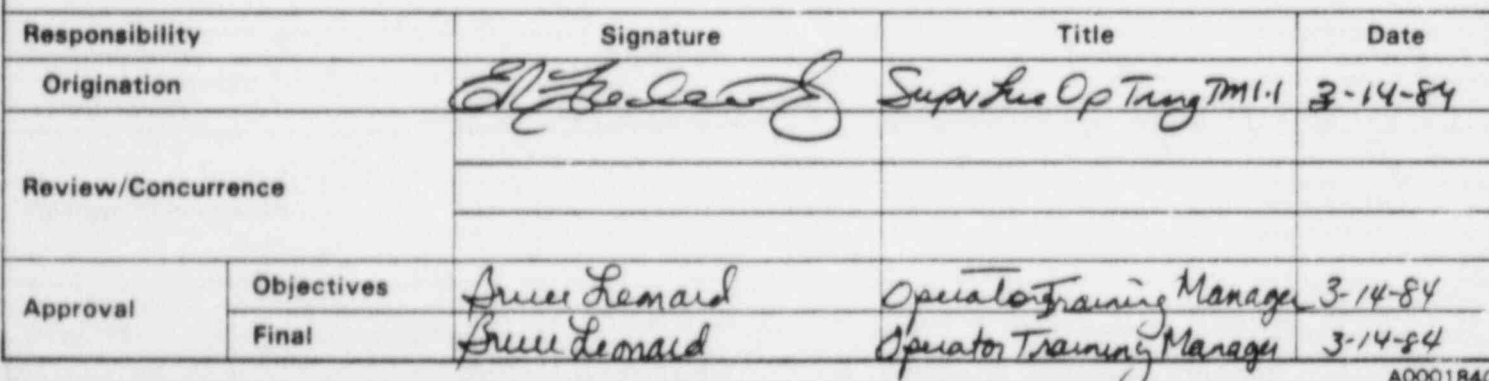 Responsibility Signature Title Date
Origination Op Trng TMI-1 3-14-84
Review/Concurrence
Approval Objectives Bruce Leonard Operator Training Manager 3-14-84
Final Bruce Leonard Operator Training Manager 3-14-84